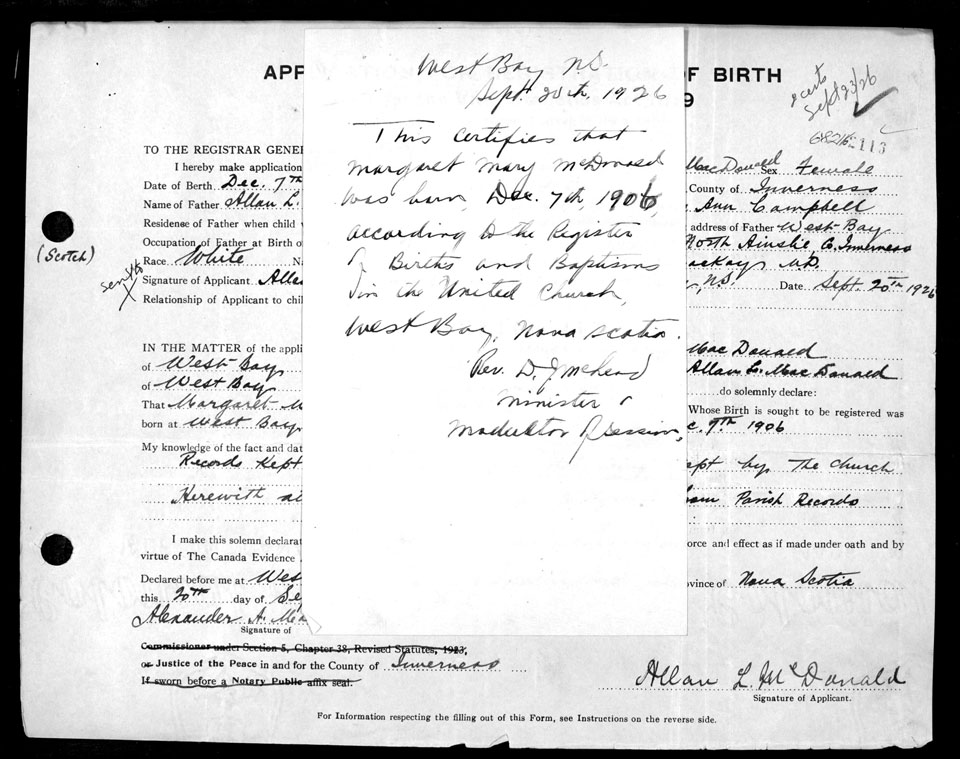 APP
F BIRTH
9
2 certs
Sept 23/26
113
TO THE REGISTRAR GENER
I hereby make application
MacDonald Sex Female
Date of Birth Dec. 7th
County of Inverness
Name of Father Allan L.
Ann Campbell
Residense of Father when child
address of Father West Bay
Occupation of Father at Birth of
North Ainslie C. Inverness
(Scotch)
Race White Na
acKay M.D.
Signature of Applicant Allan
N.S. Date Sept. 20th 1926
Relationship of Applicant to chil
West Bay N.S.
Sept. 20th, 1926
This certifies that
Margaret Mary McDonald
was born, Dec. 7th, 1906,
according to the Register
of Births and Baptisms
in the United Church,
West Bay, Nova Scotia.
Rev. D. J.
Minister &
Moderator of Session,
IN THE MATTER of the appli
MacDonald
of West Bay
Allan L. MacDonald
of West Bay
do solemnly declare:
That Margaret M
Whose Birth is sought to be registered was
born at West Bay
c. 7th 1906
My knowledge of the fact and dat
Records Kept
ept by The Church
Herewith
Parish Records
I make this solemn declarat
orce and effect as if made under oath and by
virtue of The Canada Evidence
Declared before me at Wes
vince of Nova Scotia
this 20th day of Se
Alexander A. Mc
Signature of
Commissioner under Section 5, Chapter 38, Revised Statutes, 1923,
or Justice of the Peace in and for the County of Inverness
If sworn before a Notary Public affix seal.
Allan L McDonald
Signature of Applicant.
For Information respecting the filling out of this Form, see Instructions on the reverse side.